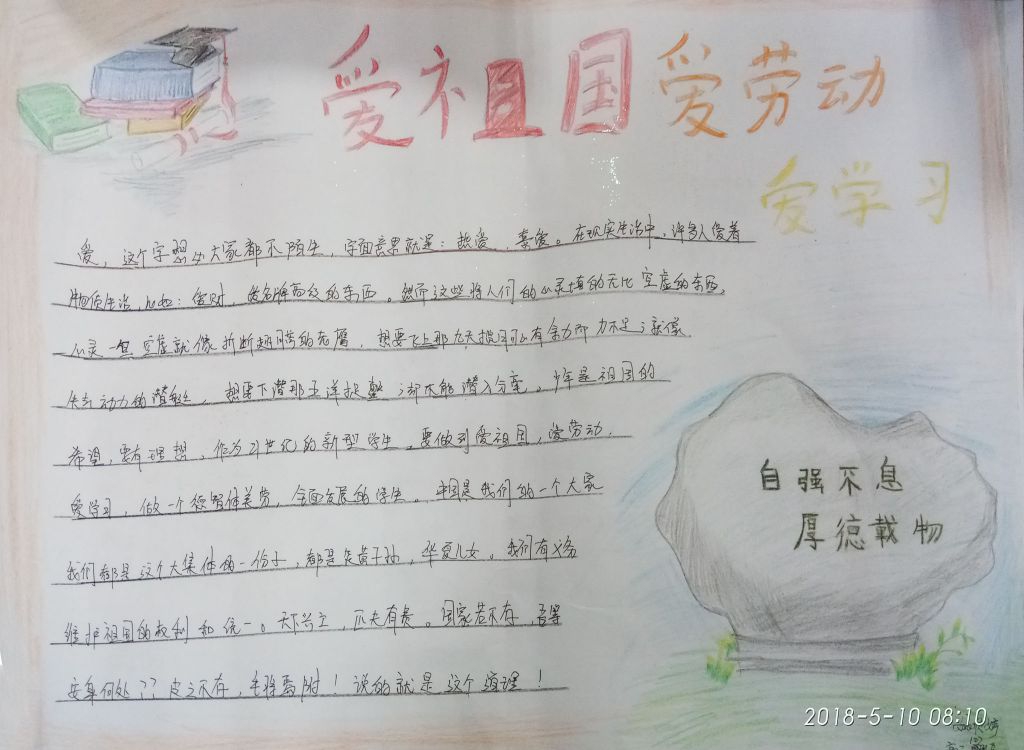 爱祖国爱劳动
爱学习
爱，这个字想必大家都不陌生，字面意思就是：热爱、喜爱。在现实生活中，许多人爱着
物质生活，比如：爱财，爱名牌高级的东西。然而这些将人们的心灵填的无比空虚的东西，
心灵一旦空虚就像折断翅膀的老鹰，想要飞上那九天揽月可心有余力而力不足；就像
失去动力的潜艇，想要下潜那五洋捉鳖；却不能潜入分毫。少年是祖国的
希望，要有理想，作为21世纪的新型学生，要做到爱祖国，爱劳动，
爱学习，做一个德智体美劳，全面发展的学生。中国是我们的一个大家
我们都是这个大集体的一份子，都是炎黄子孙，华夏儿女。我们有义务
维护祖国的权利和统一。天下兴亡，匹夫有责。国家若不存，吾等
安身何处？？皮之不存，毛将焉附！说的就是这个道理！
自强不息
厚德载物
2018-5-10 08:10